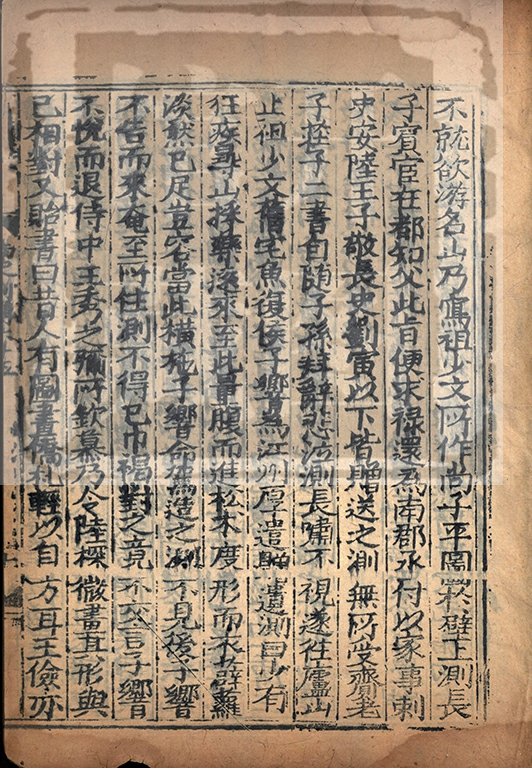 不就欲游名山乃寫祖少文所作尚子平圖於壁上測長
子賓宦在都知父此旨便求祿還爲南郡丞付以家事刺
史安陸王子敬長史劉寅以下皆贈送之測無所受齎老
子莊子二書自随子孫拜辭悲泣測長嘯不視遂往廬山
止祖少文舊宅魚復侯子響爲江州厚遣贈遺測曰少有
狂疾尋山採藥遠來至此量腹而進松术度形而衣薜蘿
淡然已足豈容當此橫施子響命駕造之測不見後子響
不告而來奄至所住測不得已巾褐對之竟不交言子響
不悅而退侍中王秀之彌所欽慕乃令陸探微畫其形與
己相對又貽書曰昔人有圖畫僑札輕以自方耳王儉亦